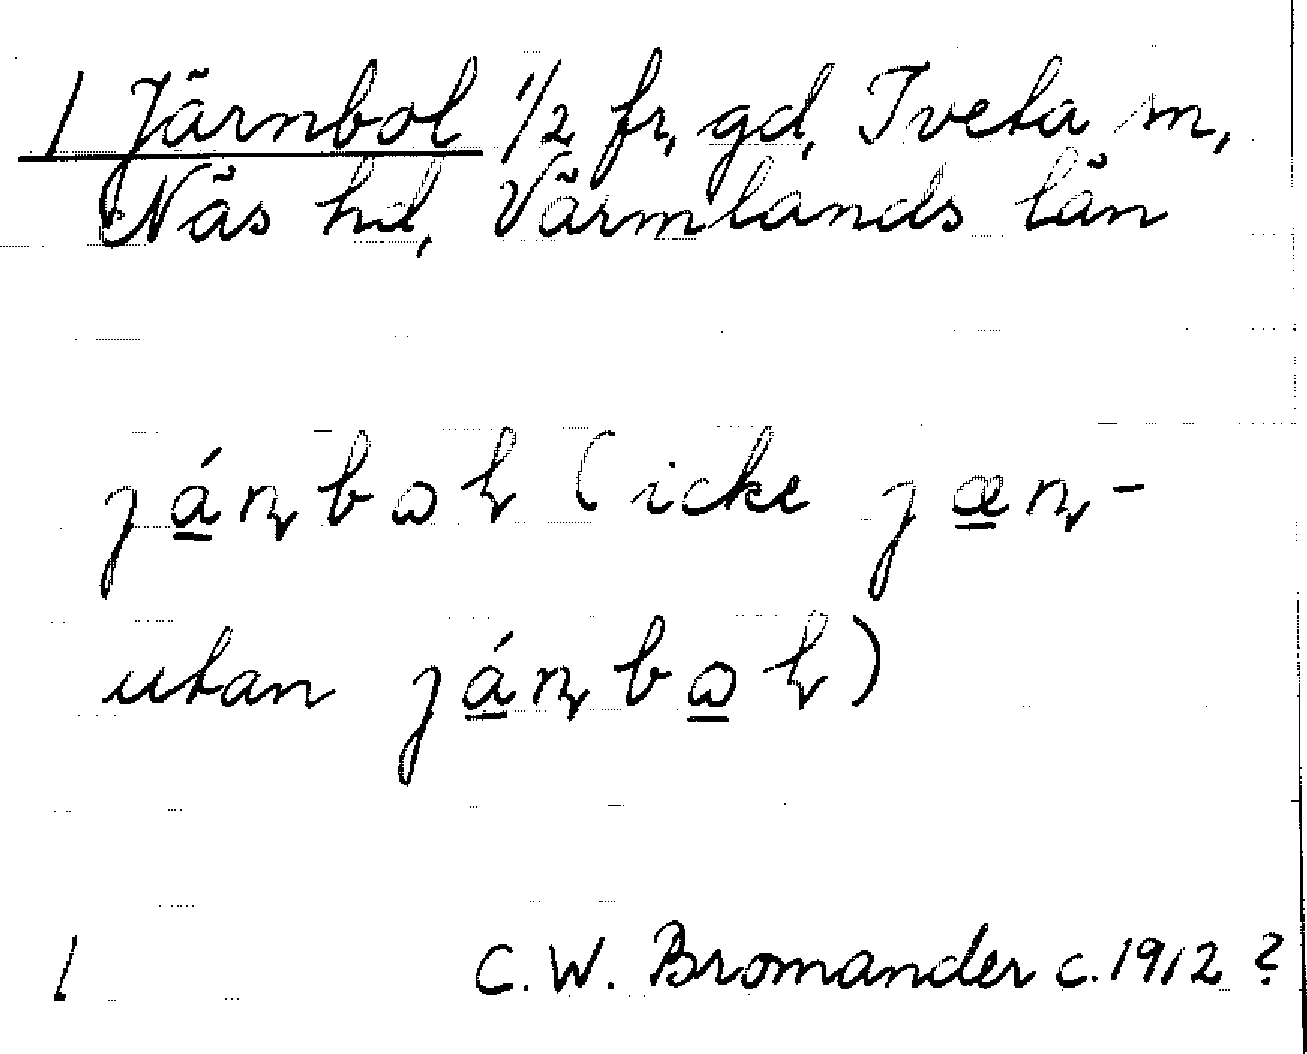 / Järnbol 1/2 fr, gd, Tveta sn,
Näs hd, Värmlands län
já̲ɳbɷɽ (icke jæ̲ɳ-
utan já̲ɳbɷ̲ɽ)
/ C. W. Bromander c. 1912 ?